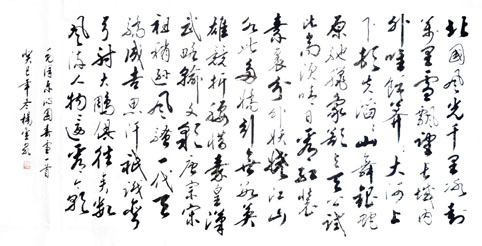 北國风光千里冰封
萬里雪飘望长城内
外唯餘莽莽大河上
下顿失滔滔山舞银蛇
原馳蠟象欲与天公试
比高须晴日看红装
素裹分外妖娆江山
如此多娇引無数英
雄競折腰惜秦皇漢
武略輸文彩唐宗宋
祖稍逊风骚一代天
骄成吉思汗祇识弯
弓射大鵰俱往矣数
风流人物還看今朝
毛泽东沁园春雪一首
癸巳年冬楊